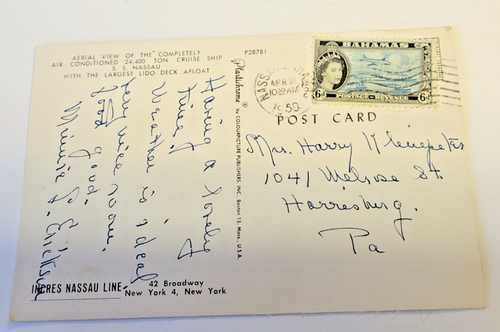 AERIAL VIEW OF THE COMPLETELY
AIR CONDITIONED 24,400 TON CRUISE SHIP
S. S. NASSAU
WITH THE LARGEST LIDO DECK AFLOAT
P28781
Plastichrome ® by COLOURPICTURE PUBLISHERS, INC., Boston 15, Mass., U.S.A.
Having a lovely
time.
Weather is ideal
very nice room.
Food good.
Minnie G.
INCRES NASSAU LINE
42 Broadway
New York 4, New York
NASS
APR
10 AM
59
BAHAMAS
6d POSTAGE & REVENUE 6d
POST CARD
Mrs. Harry
1041 Melrose St.
Harrisburg.
Pa